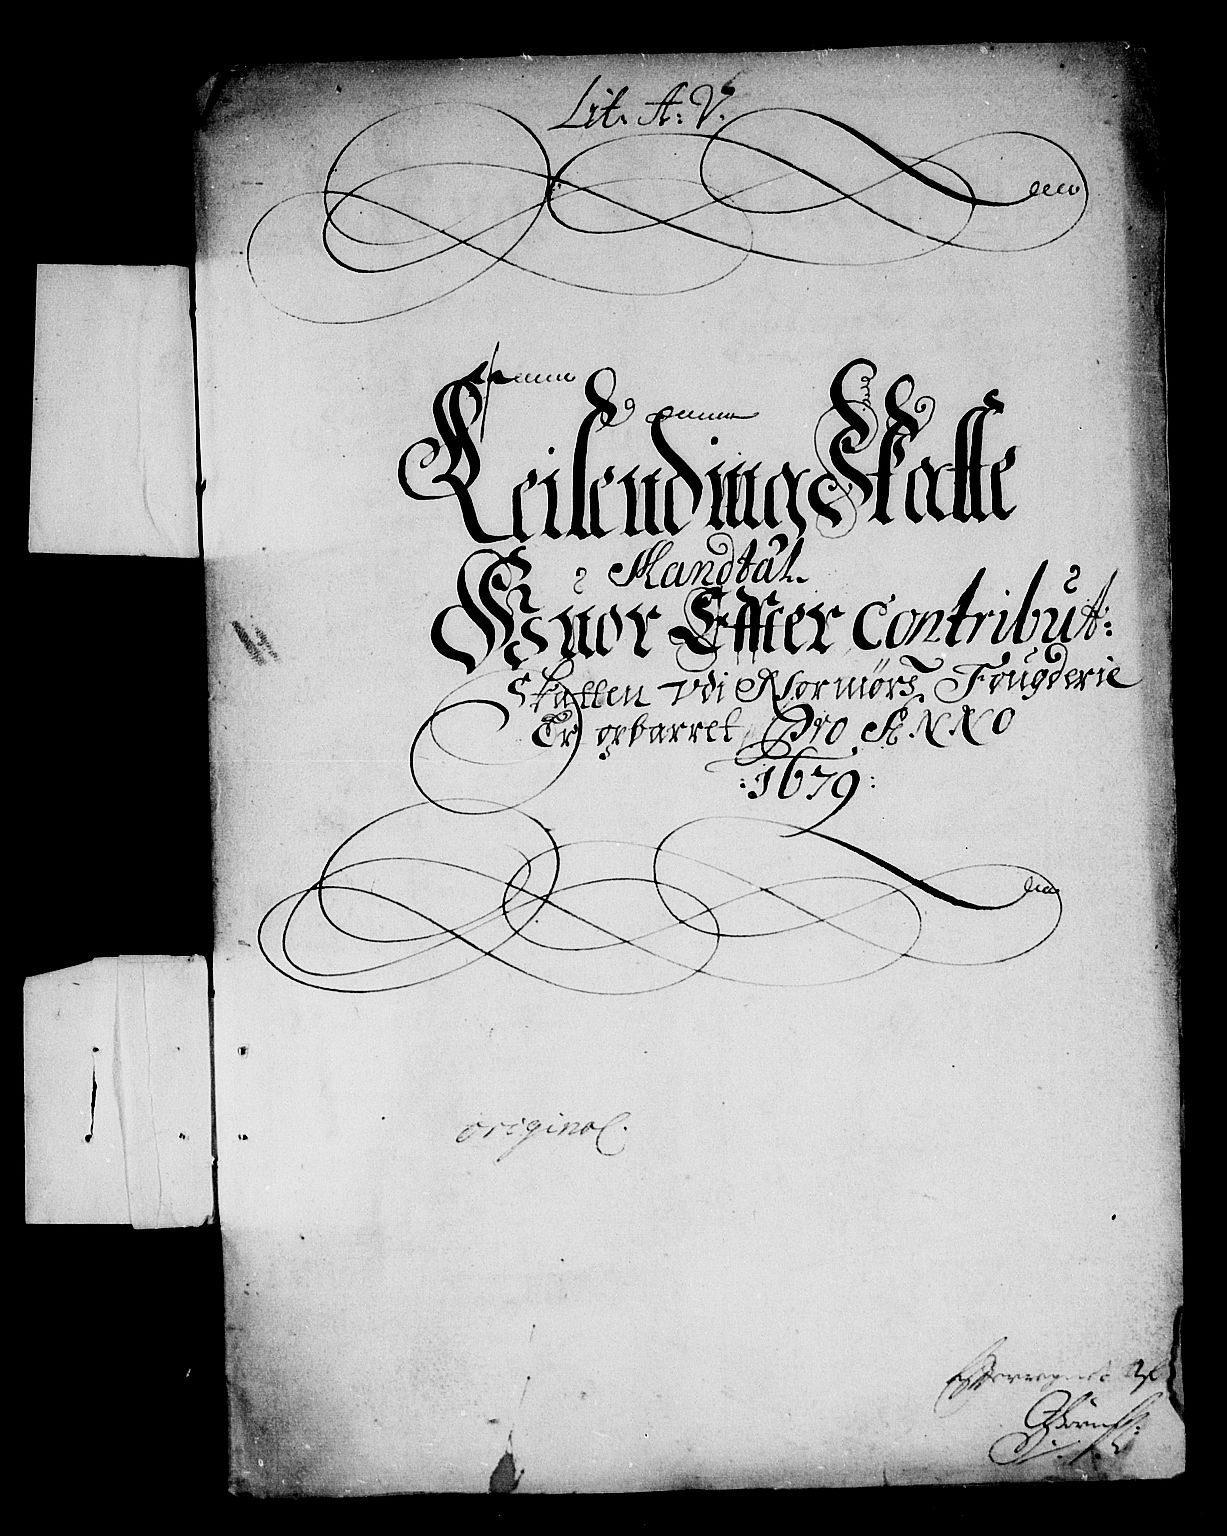 Lit. A: V.
Leilending Skatte
Mandtal.
Huor Effter Contribut:
Skatten vdi Normørs Fougderie
Er opbarret, Pro ANNO
:1679:
original.